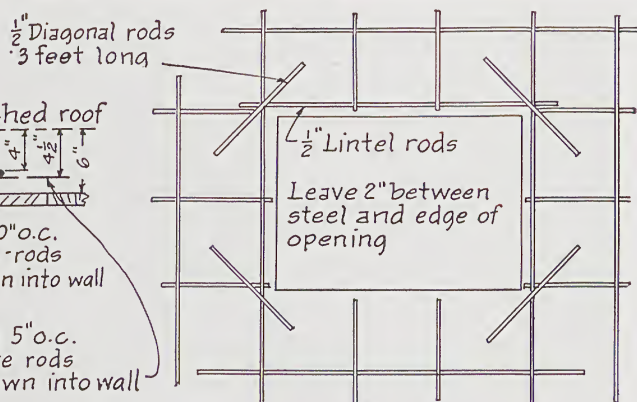 ½" Diagonal rods
3 feet long
hed roof
4"
4½"
6"
0" o.c.
-rods
n into wall
5" o.c.
e rods
wn into wall
½" Lintel rods
Leave 2" between
steel and edge of
opening